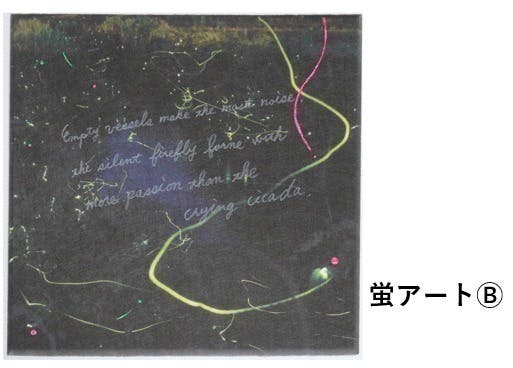 Empty vessels make the most noise
the silent firefly furne with
more passion than the
crying cicada.
蛍アートⒷ